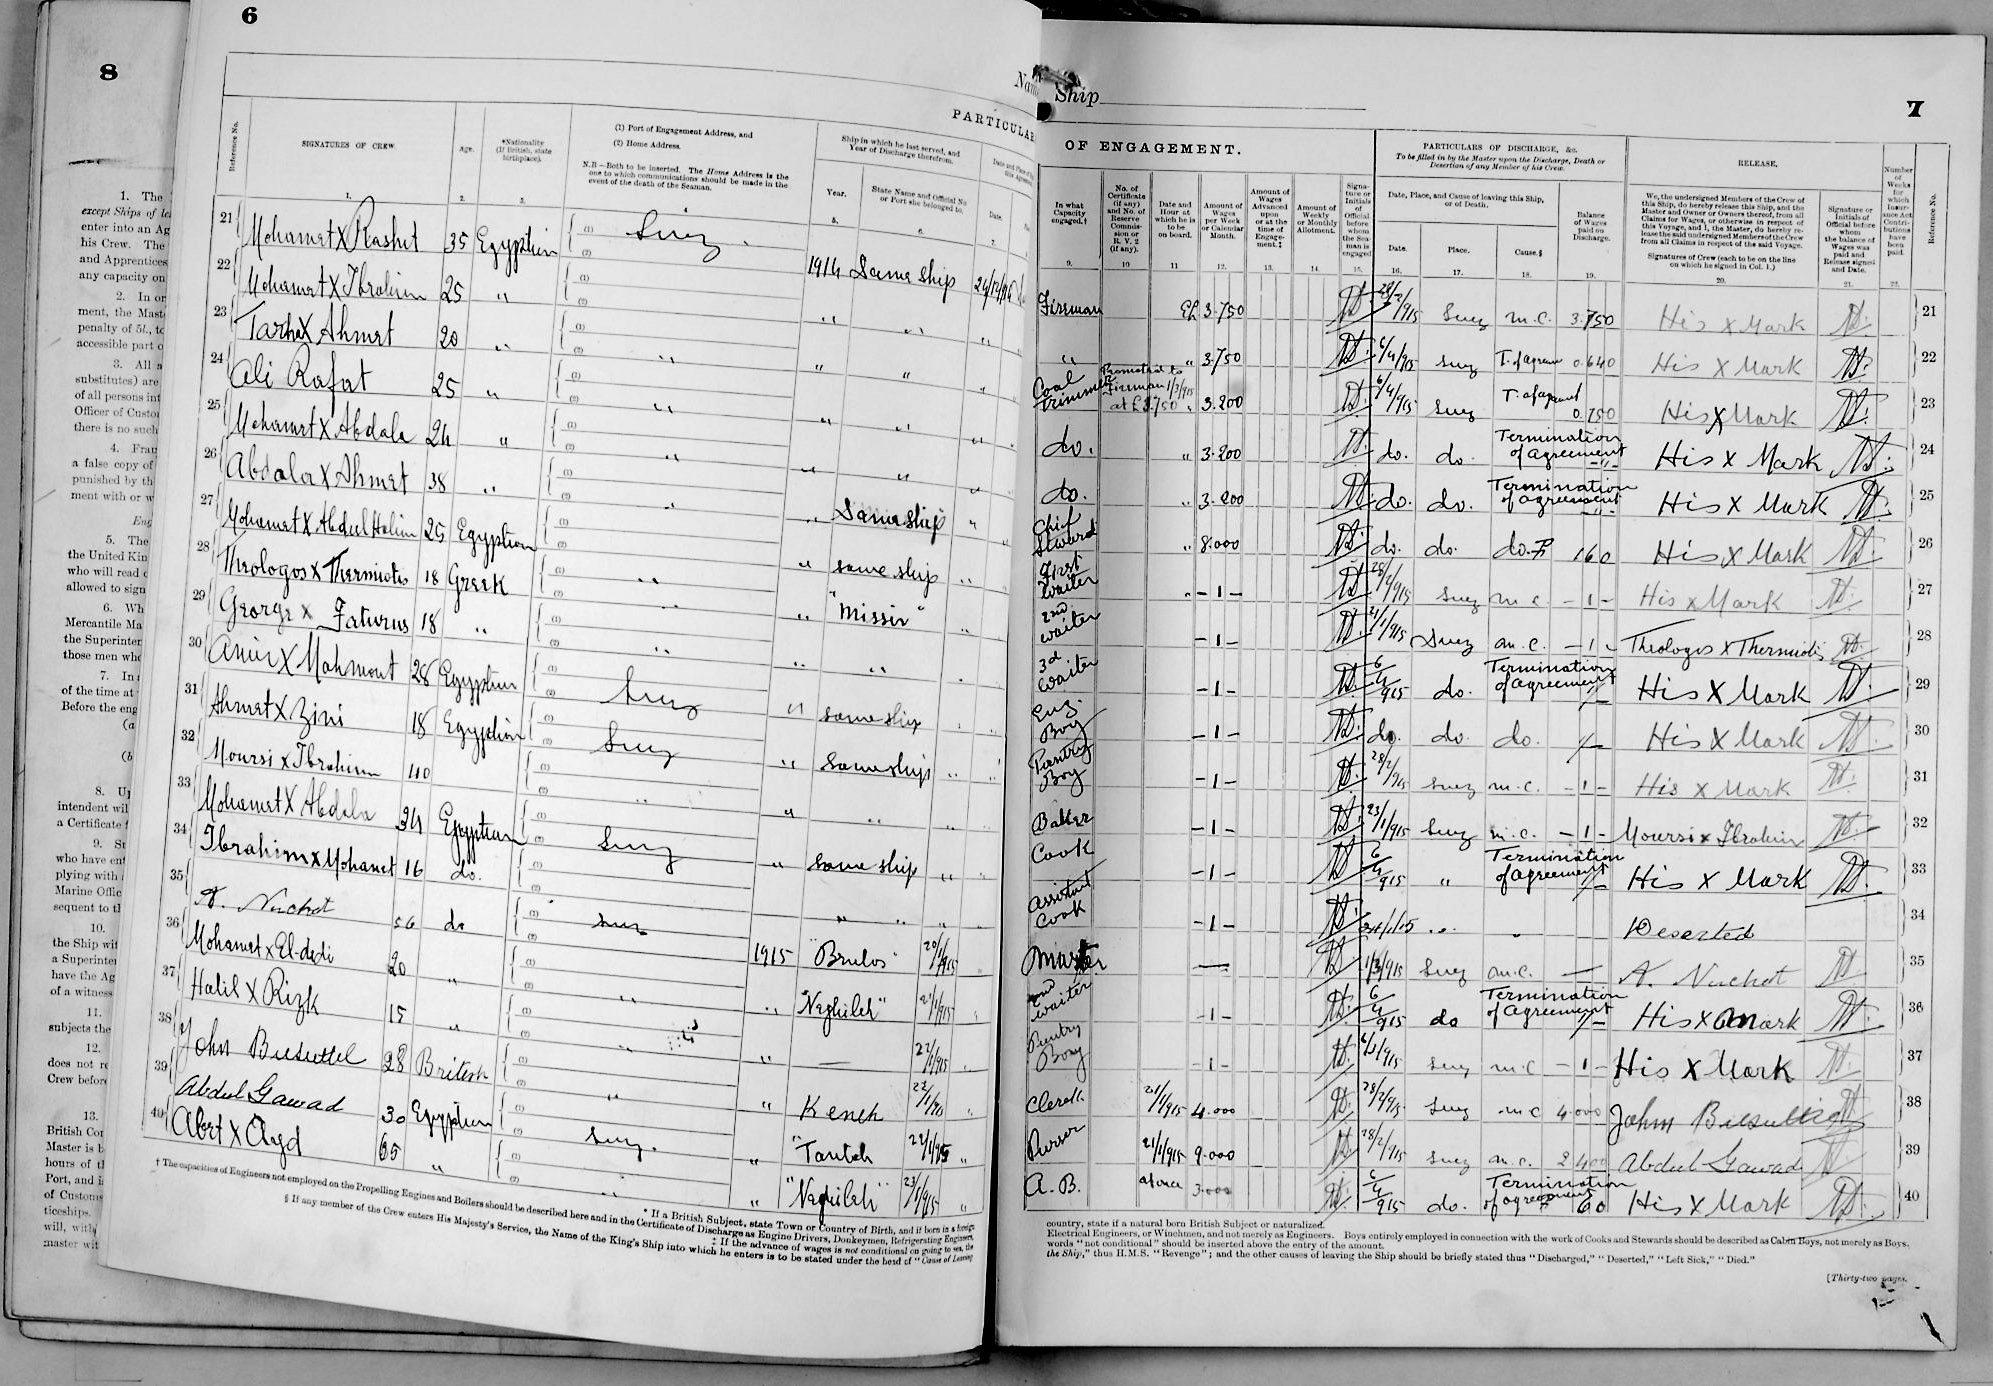 8
1. The
except Ships of
enter into an Ag
his Crew. The
and Apprentices
any capacity on
2. In or
ment, the Mast
penalty of 5l., to
accessible part o
3. All a
substitutes) are
of all persons int
Officer of Custo
there is no such
4. Frau
a false copy of
punished by th
ment with or w
5. The
the United Kin
who will read
allowed to sign
6. Wh
Mercantile Ma
the Superinter
those men who
7. In
of the time at
Before the eng
(a
(b
8.
intendent wil
a Certificate
9.
who have ent
plying with
Marine Offic
sequent to th
10.
the Ship wit
a Superinter
have the Ag
of a witness
11.
subjects the
12.
does not re
Crew before
13.
British Cor
Master is b
hours of th
Port, and i
of Customs
ticeships.
will, with
master wit
6
PARTICULAR
Reference No.
SIGNATURES OF CREW
1.
Age.
2.
*Nationality (If British, state birthplace).
3.
(1) Port of Engagement Address, and
(2) Home Address.
N.B.—Both to be inserted. The Home Address is the
one to which communications should be made in the
event of the death of the Seaman.
Ship in which he last served, and
Year of Discharge therefrom.
Year.
5.
State Name and Official No.
or Port she belonged to.
6.
Date.
7.
21 Mohamet X Rashet 35 Egyptian (1) Suez. (2) 1914 Same ship
22 Mohamet X Ibrahim 25 " (1) (2) " "
23 Tarha X Ahmet 20 " (1) " (2) " "
24 Ali Rafat 25 " (1) (2) " "
25 Mohamet X Abdala 24 " (1) " (2) " "
26 Abdala X Ahmet 38 " (1) " (2) " Same ship "
27 Mohamet X Abdul Halim 25 Egyptian (1) " (2) " same ship "
28 Theologos X Thermiotis 18 Greek (1) " (2) " "Missir" "
29 George X Faturus 18 " (1) " (2) " " "
30 Amin X Mahmout 28 Egyptian (1) Suez (2) " same ship
31 Ahmet X Zini 18 Egyptian (1) Suez (2) " same ship "
32 Moursi X Ibrahim 40 (1) " (2) " " "
33 Mohamet X Abdala 34 Egyptian (1) Suez (2) " same ship "
34 Ibrahim X Mohamet 16 do. (1) (2) " " "
35 A. Nuchet 56 do (1) Suez (2) 1915 "Brulos" 20/1/915
36 Mohamet X El-dedi 20 " (1) " (2) " "Neghileh" 21/1/915
37 Halil X Rizk 15 " (1) " (2) " — 22/1/915
38 John Busuttil 28 British (1) " (2) " Keneh
39 Abdul Gawad 30 Egyptian (1) Suez. (2) " "Tantah 22/1/915 "
40 Abet X Ayd 65 " (1) " (2) " "Neghileh" 23/1/915 "
* If a British Subject, state Town or Country of Birth, and if born in a foreign
† The capacities of Engineers not employed on the Propelling Engines and Boilers should be described here and in the Certificate of Discharge as Engine Drivers, Donkeymen, Refrigerating Engineers,
‡ If the advance of wages is not conditional on going to sea, the
§ If any member of the Crew enters His Majesty's Service, the Name of the King's Ship into which he enters is to be stated under the head of "Cause of Leaving
Ship
7
OF ENGAGEMENT.
PARTICULARS OF DISCHARGE, &c.
To be filled in by the Master upon the Discharge, Death or
Desertion of any Member of his Crew.
RELEASE.
In what Capacity engaged.†
9.
No. of Certificate (if any) and No. of Reserve Commission or R. V. 2 (if any).
10
Date and Hour at which he is to be on board.
11
Amount of Wages per Week or Calendar Month.
12.
Amount of Wages Advanced upon or at the time of Engagement.‡
13.
Amount of Weekly or Monthly Allotment.
14.
Signature or Initials of Official before whom the Seaman is engaged
15.
Date, Place, and Cause of leaving this Ship, or of Death.
Date.
16.
Place.
17.
Cause.§
18.
Balance of Wages paid on Discharge.
19.
We, the undersigned Members of the Crew of
this Ship, do hereby release this Ship, and the
Master and Owner or Owners thereof, from all
Claims for Wages, or otherwise in respect of
this Voyage, and I, the Master, do hereby re-
lease the said undersigned Members of the Crew
from all Claims in respect of the said Voyage.
Signatures of Crew (each to be on the line
on which he signed in Col. 1.)
20.
Signature or Initials of Official before whom the balance of Wages was paid and Release signed and Date.
21.
Number of Weeks for which Insurance Act Contributions have been paid.
22.
Reference No.
Fireman 3.750 28/2/915 Suez m.c. 3.750 His X Mark 21
" " 3.750 6/4/915 Suez 0.640 His X Mark 22
Coal trimmer Promoted to Fireman 1/3/915 at £3.750 " 3.200 6/4/915 Suez 0.750 His X Mark 23
do. " 3.200 do. do. Termination of agreement His X Mark 24
do. " 3.200 do. do. Termination of agreement His X Mark 25
Chief Steward " 8.000 do. do. do. 160 His X Mark 26
First waiter " – 1 – 28/2/915 Suez m.c – 1 – His X Mark 27
2nd waiter – 1 – 21/1/915 Suez m.c. – 1 – Theologos X Thermiotis 28
3d waiter – 1 – 6/4/915 do. Termination of agreement His X Mark 29
Eng. Boy – 1 – do. do. do. His X Mark 30
Pantry Boy – 1 – 28/2/915 Suez m.c. – 1 – His X Mark 31
Baker – 1 – 23/1/915 Suez m.c. – 1 – Moursi X Ibrahim 32
Cook – 1 – 6/4/915 " Termination of agreement His X Mark 33
assistant Cook – 1 – 24/1/15 " " Deserted 34
Master — 1/3/915 Suez m.c. — A. Nuchet 35
2nd waiter – 1 – 6/4/915 do Termination of agreement His X Mark 36
Pantry Boy – 1 – Suez m.c – 1 – His X Mark 37
Clerk 21/1/915 4.000 28/2/915 Suez m.c 4.000 John Busuttil 38
Purser 21/1/915 9.000 28/2/915 Suez m.c. 2.400 Abdul Gawad 39
A.B. at once 3.000 6/4/915 do. Termination of agreement 60 His X Mark 40
country, state if a natural born British Subject or naturalized.
Electrical Engineers, or Winchmen, and not merely as Engineers. Boys entirely employed in connection with the work of Cooks and Stewards should be described as Cabin Boys, not merely as Boys.
words "not conditional" should be inserted above the entry of the amount.
the Ship," thus H.M.S. "Revenge"; and the other causes of leaving the Ship should be briefly stated thus "Discharged," "Deserted," "Left Sick," "Died."
[Thirty-two pages.